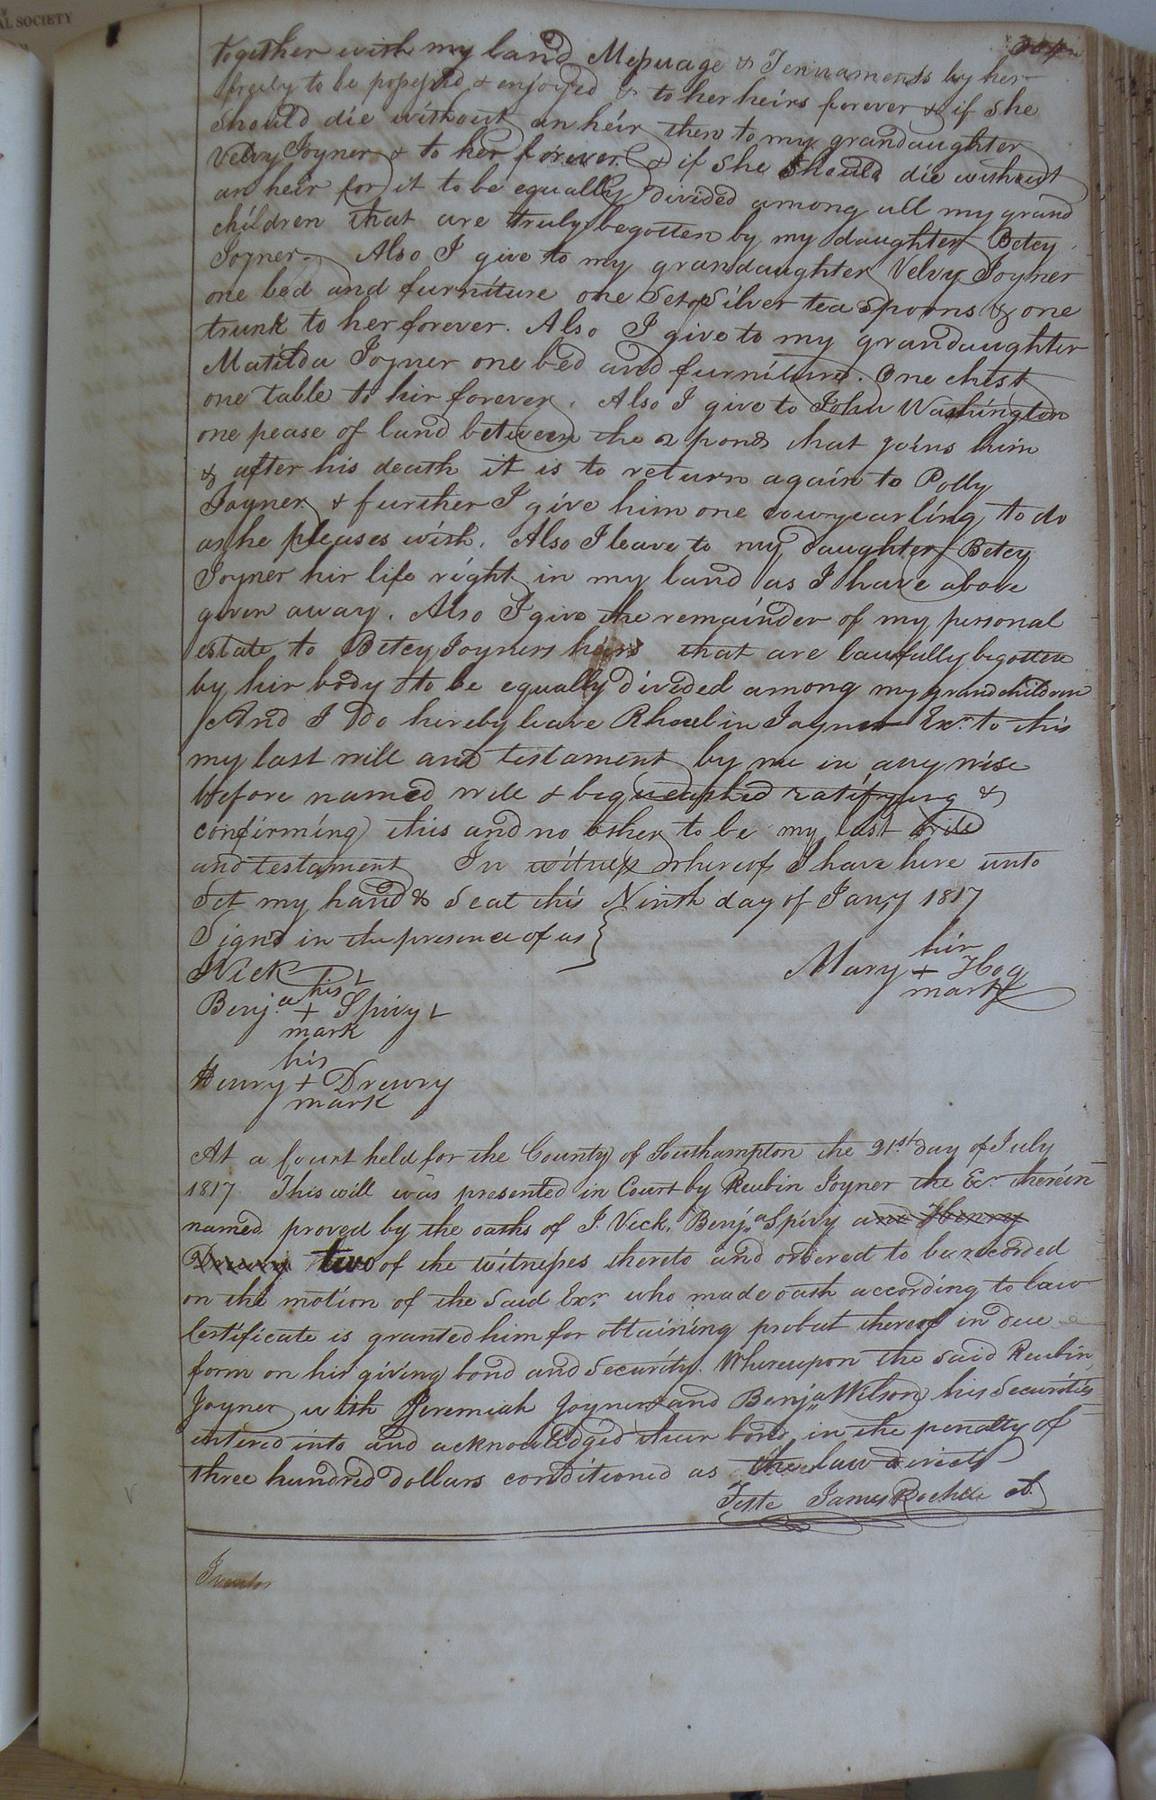 AL SOCIETY
together with my land Messuage & Tennaments by her
freely to be possessed & enjoyed & to her heirs forever & if she
should die without an heir then to my grandaughter
Velvy Joyner & to her forever & if she should die without
an heir for it to be equally divided among all my grand
children that are truly begotten by my daughter Betcy
Joyner. Also I give to my grandaughter Velvy Joyner
one bed and furniture one Set of Silver tea Spoons & one
trunk to her forever. Also I give to my grandaughter
Matilda Joyner one bed and furniture. One chest
one table to hir forever. Also I give to John Washington
one pease of land between the 2 ponds that joins him
& after his death it is to return again to Polly
Joyner & further I give him one cow yearling to do
as he pleases with. Also I leave to my daughter Betcy
Joyner hir life right in my land as I have above
given away. Also I give the remainder of my personal
estate to Betcy Joyners heirs that are lawfully begotten
by hir body to be equally divided among my grandchildren
And I do hereby leave Rheubin Joyner Exr. to this
my last will and testament by me in any wise
before named will & bequeathed ratifying &
confirming this and no other to be my last will
and testament In witness whereof I have here unto
Set my hand & Seal this Ninth day of Jany 1817
Signd in the presence of us
Vick
hir
Mary + Hog
mark
his
Benja. + Spivy
mark
his
Henry + Drewry
mark
At a Court held for the County of Southampton the 21st day of July
1817 This will was presented in Court by Reubin Joyner the Exr therein
named proved by the oaths of J. Vick, Benja Spivy and Henry
Drewry two of the witnesses thereto and ordered to be recorded
on the motion of the Said Exr who made oath according to law
Certificate is granted him for obtaining probat thereof in due
form on his giving bond and Security. Whereupon the said Reubin
Joyner with Jeremiah Joyner and Benja Wilson his Securities
entered into and acknowledged their bond in the penalty of
three hundred dollars conditioned as the law directs
Teste James Rochelle ct.